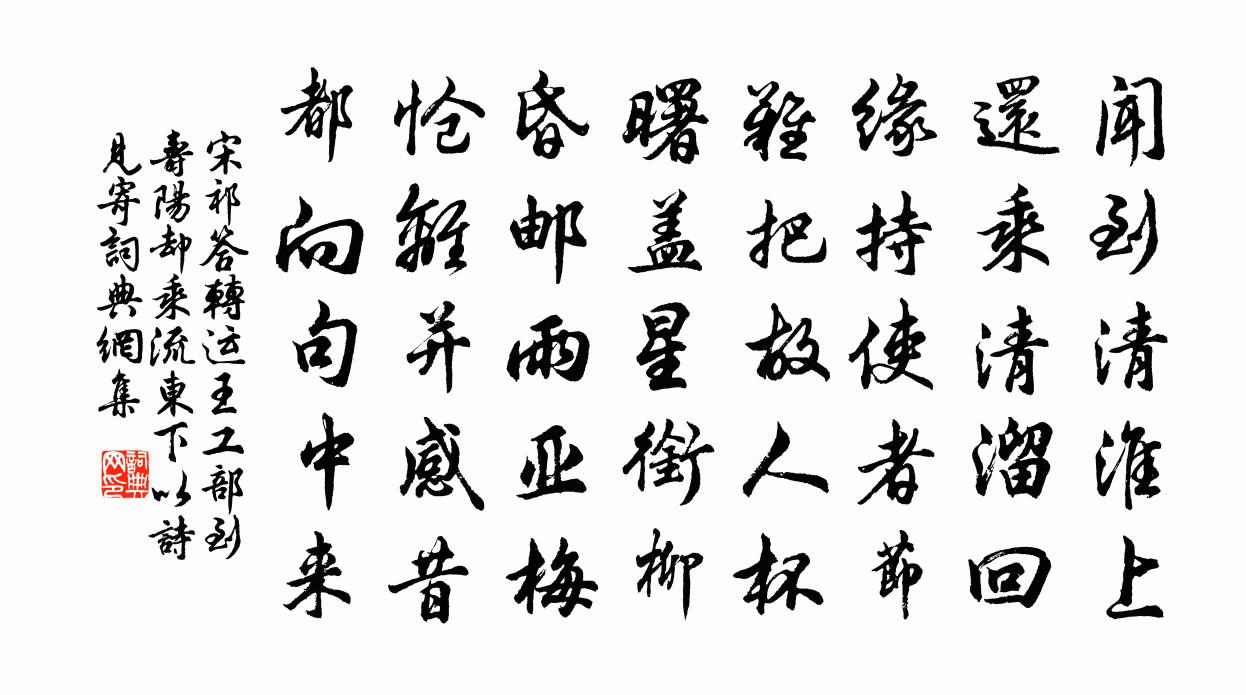 闻到清淮上
還乘清溜回
缘持使者節
難把故人杯
曙盖星銜柳
昏邮雨亚梅
怆離并感昔
都向句中来
宋祁答轉运王工部到
壽陽却乘流東下以詩
見寄詞典網集
詞典网印